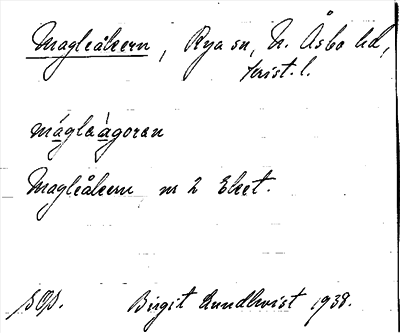 Magleåkern, Rya sn, N. Åsbo hd,
Krist. l.
máglaàgoran
Magleåkern nr 2 Eket.
sOp. Birgit Lundkvist 1938.